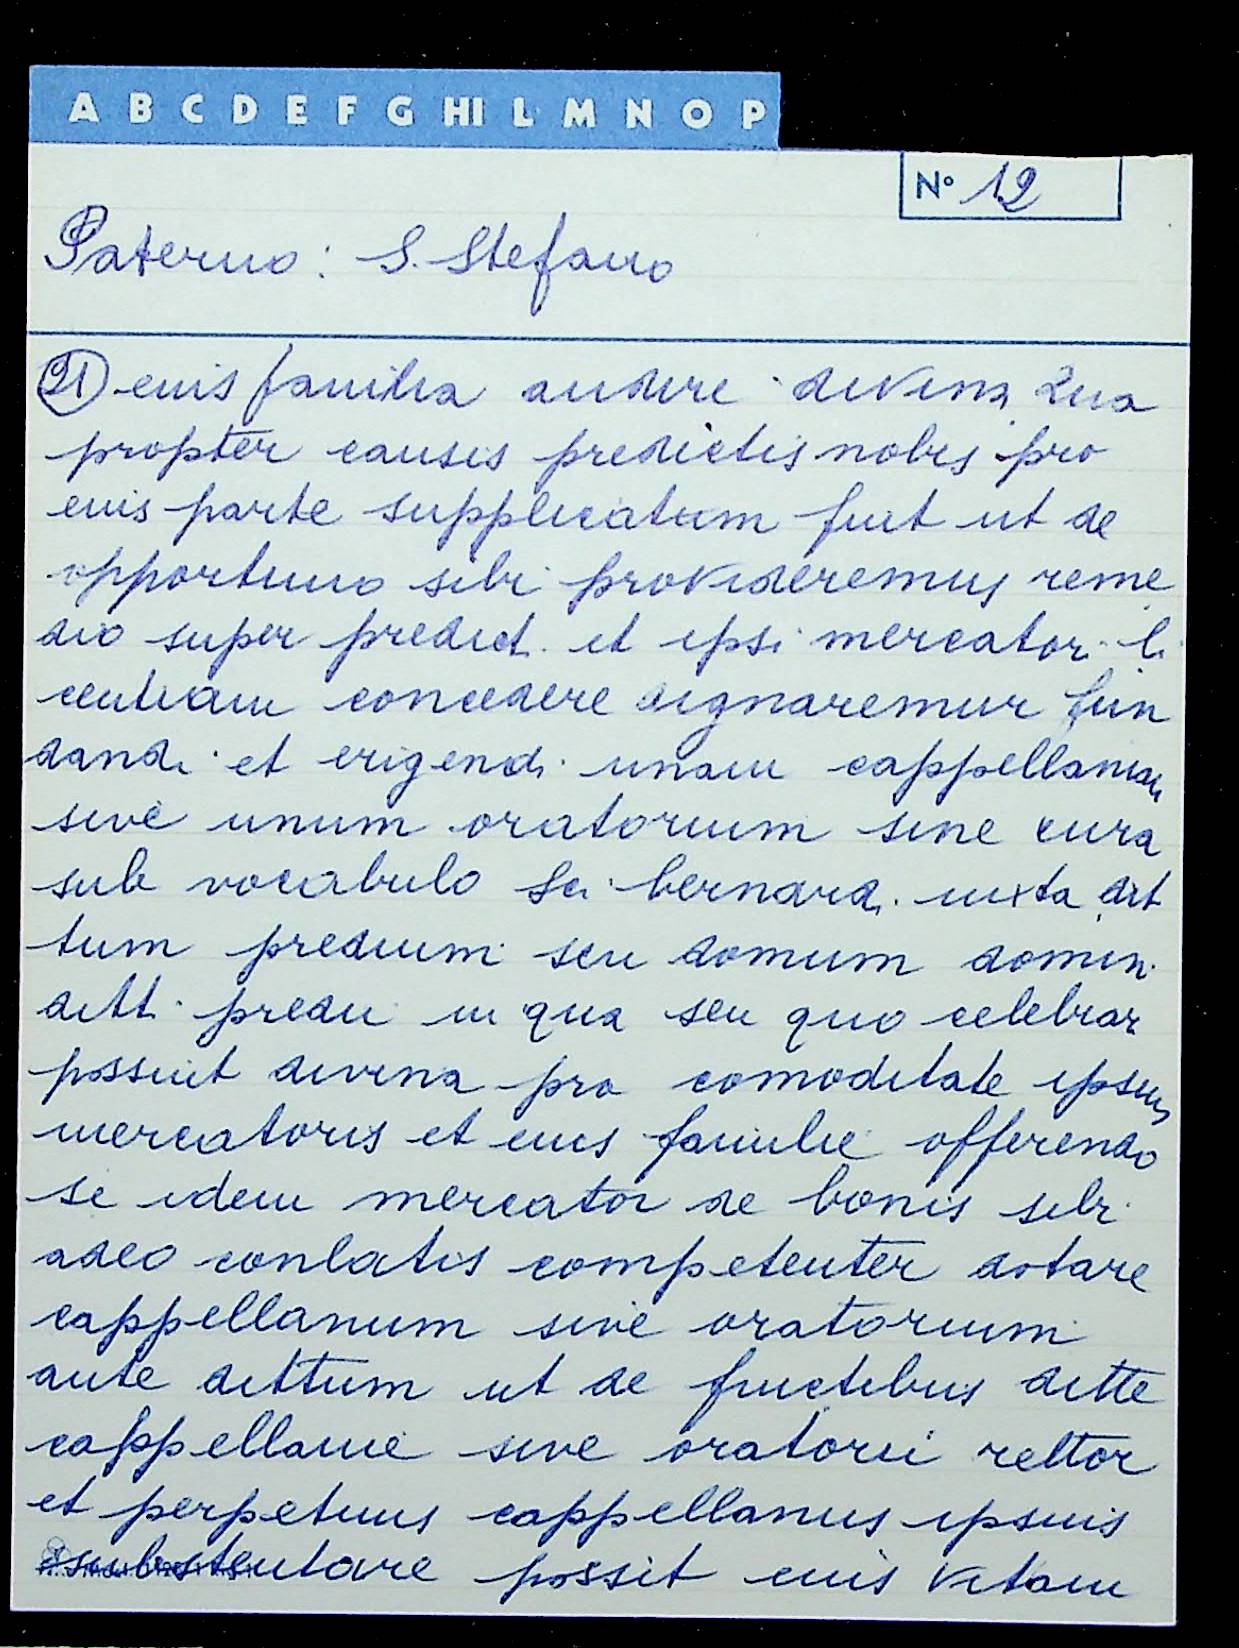 A B C D E F G HI L M N O P
N° 12
Paterno: S. Stefano
21) euis familia audire divina Qua
propter causis predictis nobis pro
euis parte supplicatum fuit ut de
opportuno sibi provideremus reme
dio super predict. et ipsi mercatori li
centiam concedere dignaremur fun
dandi et erigendi unam cappellaniam
sive unum oratorium sine cura
sub vocabulo Sci bernardi iuxta dit
tum predium seu domum domin.
ditti predii in qua seu quo celebrar
possint divina pro comoditate ipsius
mercatoris et eius familie offerendo
se idem mercator de bonis sibi
adeo conlatis competenter dotare
cappellanum sive oratorium
ante dittum ut de fructibus ditte
cappellanie sive oratorii rettor
et perpetuus cappellanus ipsius
substentare possit euis vitam